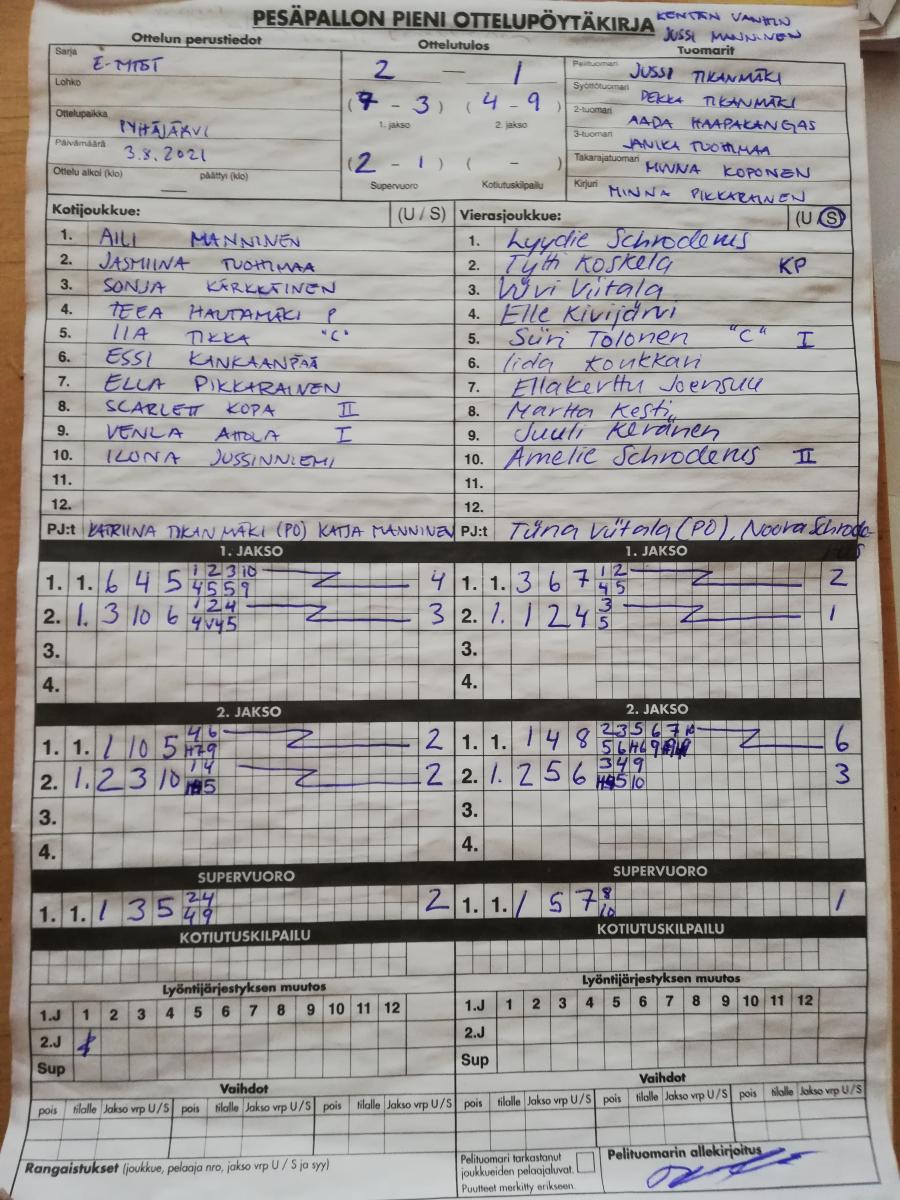 PESÄPALLON PIENI OTTELUPÖYTÄKIRJA
KENTÄN VANHIN
JUSSI MANNINEN
Ottelun perustiedot
Ottelutulos
Tuomarit
Sarja
Lohko
Ottelupaikka PYHÄJÄRVI
Päivämäärä 3.8.2021
Ottelu alkoi (klo) — päättyi (klo)
2 — 1
(7 - 3) (4 - 9)
1. jakso 2. jakso
(2 - 1) ( - )
Supervuoro Kotiutuskilpailu
Pelituomari JUSSI TIKANMÄKI
Syöttötuomari PEKKA TIKANMÄKI
2-tuomari AADA HAAPAKANGAS
3-tuomari JANIKA TUOHIMAA
Takarajatuomari MINNA KOPONEN
Kirjuri MINNA PIKKARAINEN
Kotijoukkue: (U / S)
1. AILI MANNINEN
2. JASMIINA TUOHIMAA
3. SONJA KÄRKKÄINEN
4. TEEA HAUTAMÄKI P
5. IIA TIKKA "C"
6. ESSI KANKAANPÄÄ
7. ELLA PIKKARAINEN
8. SCARLETT KOPA II
9. VENLA AHOLA I
10. ILONA JUSSINNIEMI
11.
12.
PJ:t KATRIINA TIKANMÄKI (PO) KATJA MANNINEN
Vierasjoukkue: (U / S)
1. Lyydie Schroderus
2. Tytti Koskela KP
3. Viivi Viitala
4. Elle Kivijärvi
5. Siiri Tolonen "C" I
6. Iida Koukkari
7. Ellakerttu Joensuu
8. Martta Kesti
9. Juuli Keränen
10. Amelie Schroderus II
11.
12.
PJ:t Tiina Viitala (PO), Noora Schroderus
1. JAKSO
1. 1. 6 4 5 1 2 3 10 4
4 5 5 9
2. 1. 3 10 6 1 2 4 3
4 V4 5
3.
4.
1. JAKSO
1. 1. 3 6 7 1 2 2
4 5
2. 1. 1 2 4 3 1
5
3.
4.
2. JAKSO
1. 1. 1 10 5 4 6 2
2. 1. 2 3 10 1 4 2
3.
4.
2. JAKSO
1. 1. 1 4 8 2 3 5 6 7 10 6
2. 1. 2 5 6 3 4 9 3
3.
4.
SUPERVUORO
1. 1. 1 3 5 2 4 2
4 9
SUPERVUORO
1. 1. 1 5 7 8 1
10
KOTIUTUSKILPAILU
KOTIUTUSKILPAILU
Lyöntijärjestyksen muutos
1.J 1 2 3 4 5 6 7 8 9 10 11 12
2.J
Sup
Lyöntijärjestyksen muutos
1.J 1 2 3 4 5 6 7 8 9 10 11 12
2.J
Sup
Vaihdot
pois tilalle Jakso vrp U / S pois tilalle Jakso vrp U / S pois tilalle Jakso vrp U / S
Vaihdot
pois tilalle Jakso vrp U / S pois tilalle Jakso vrp U / S pois tilalle Jakso vrp U / S
Rangaistukset (joukkue, pelaaja nro, jakso vrp U / S ja syy)
Pelituomari tarkastanut
joukkueiden pelaajaluvat.
Puutteet merkitty erikseen.
Pelituomarin allekirjoitus